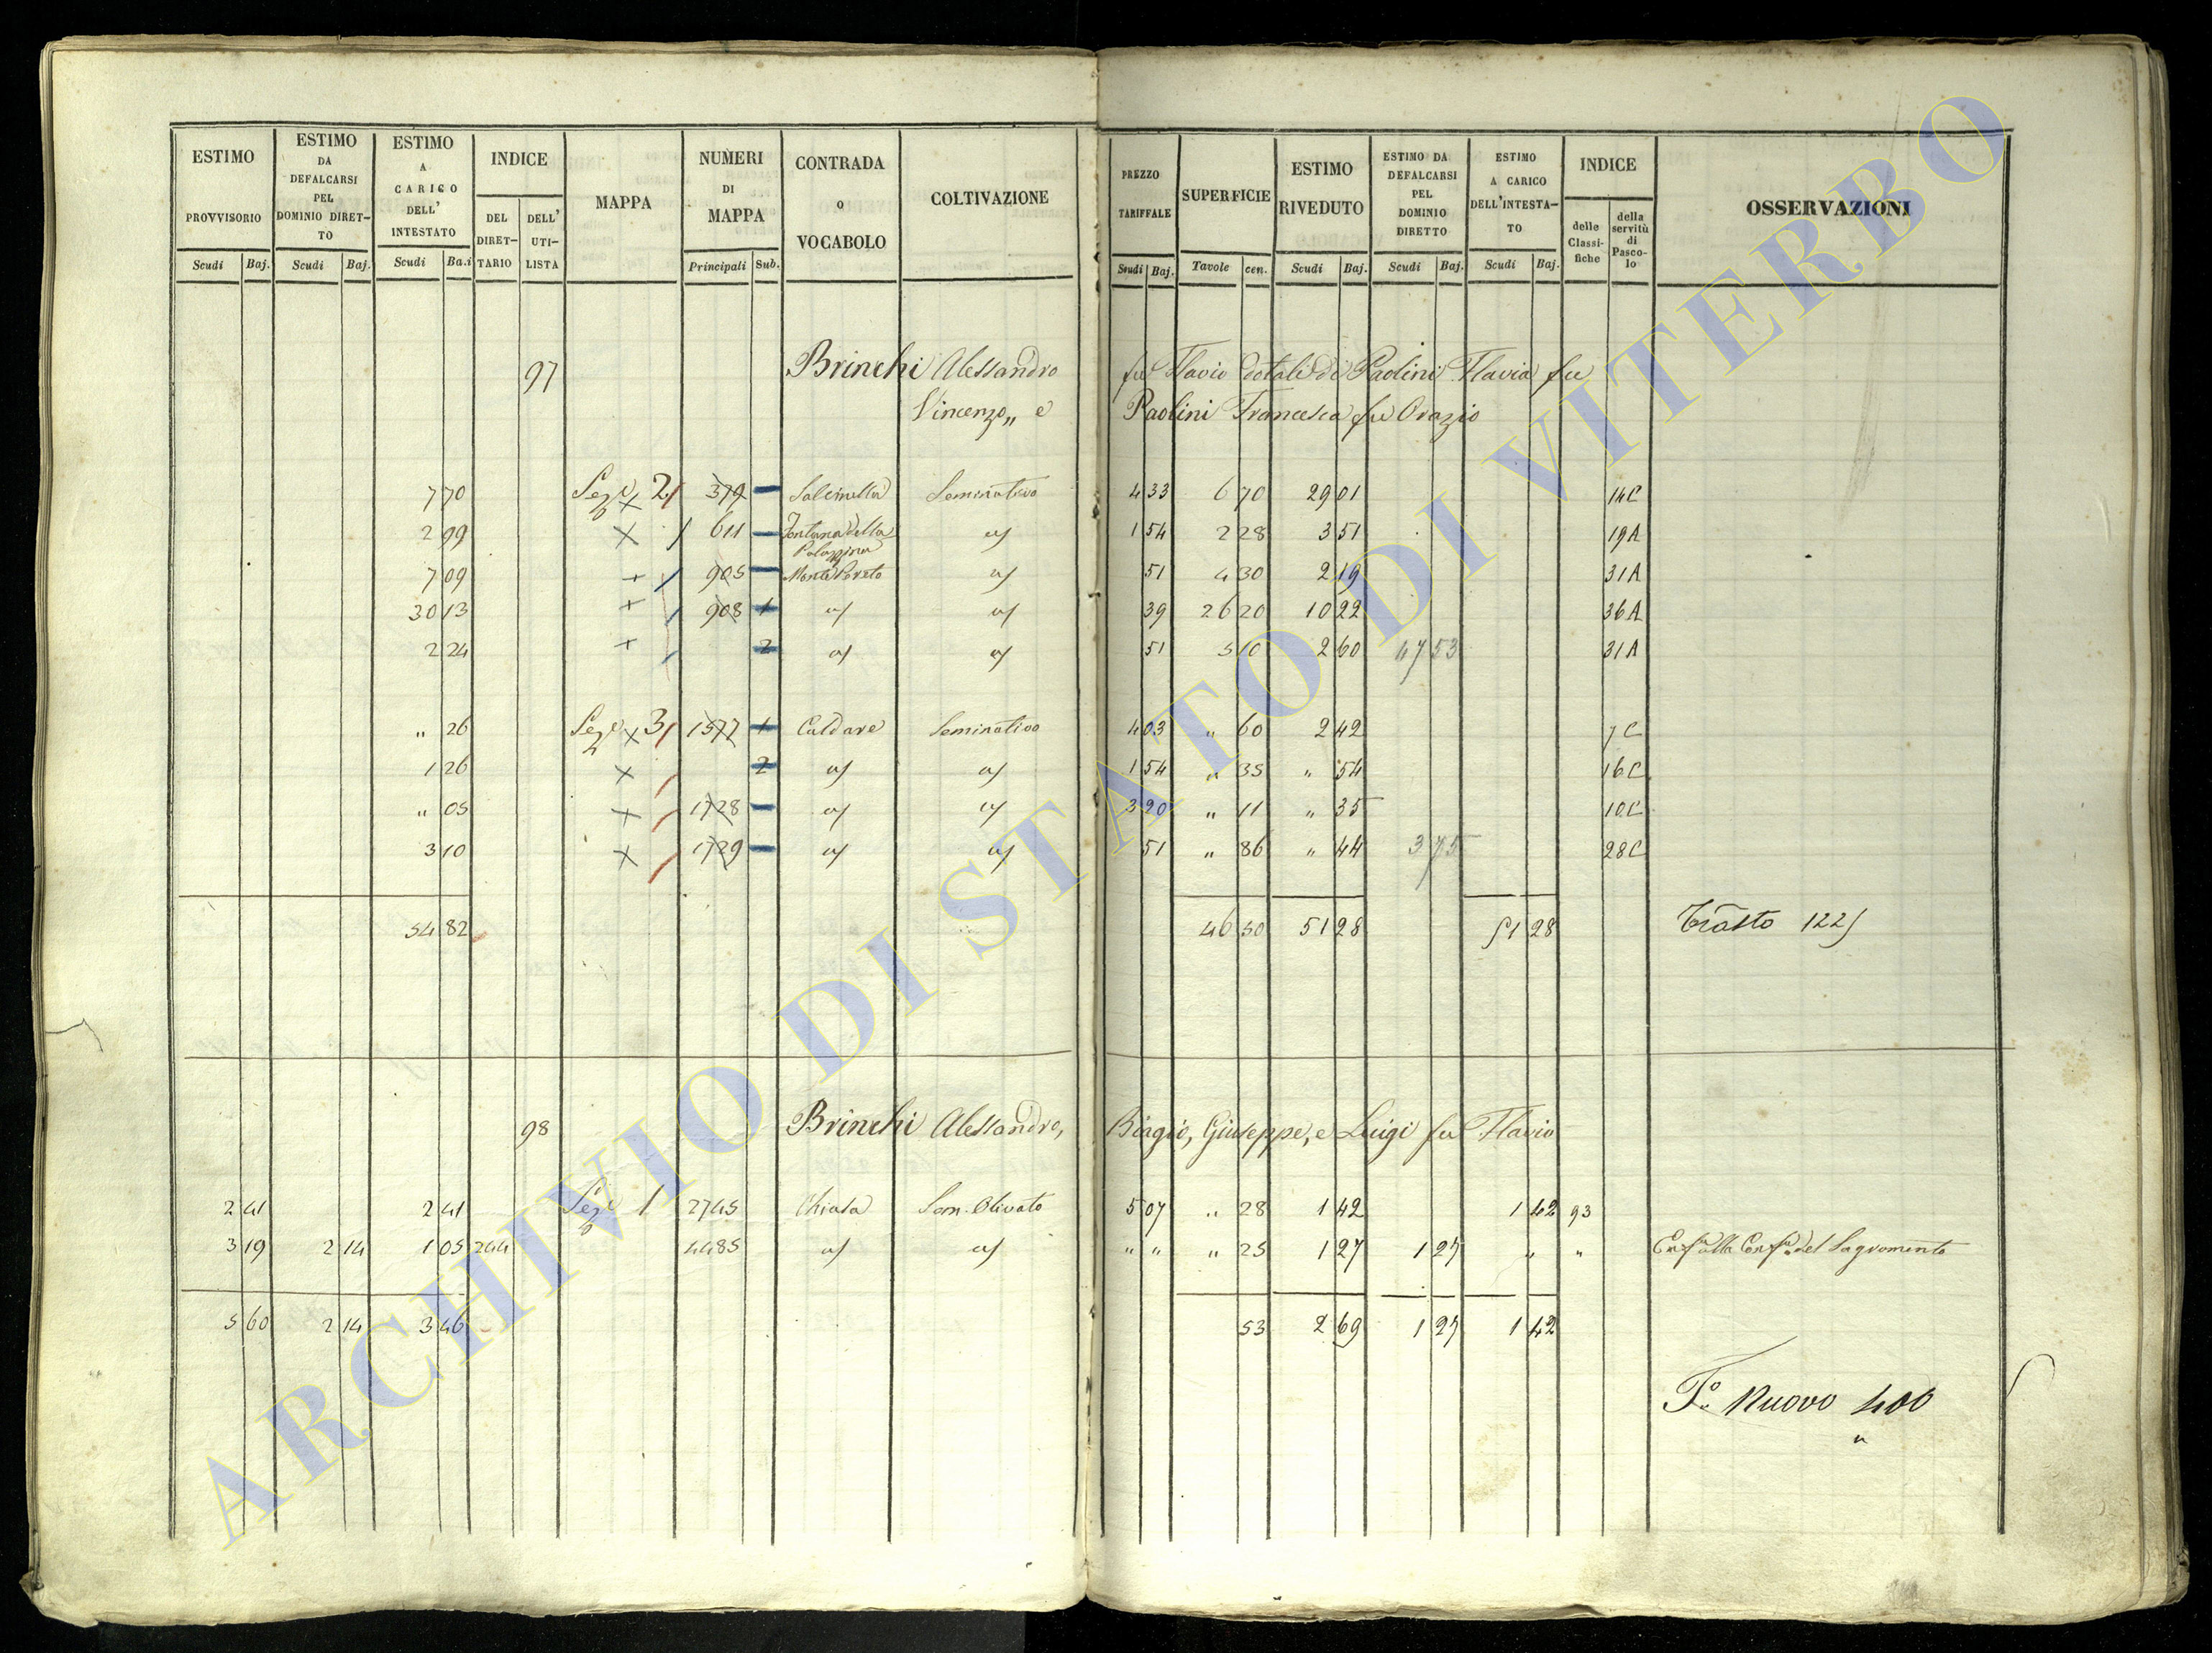 ESTIMO PROVVISORIO Scudi Baj. ESTIMO DA DEFALCARSI PEL DOMINIO DIRETTO Scudi Baj. ESTIMO A CARICO DELL' INTESTATO Scudi Ba.i INDICE DEL DIRETTARIO DELL' UTILISTA MAPPA NUMERI DI MAPPA Principali Sub. CONTRADA O VOCABOLO COLTIVAZIONE PREZZO TARIFFALE Scudi Baj. SUPERFICIE Tavole cen. ESTIMO RIVEDUTO Scudi Baj. ESTIMO DA DEFALCARSI PEL DOMINIO DIRETTO Scudi Baj. ESTIMO A CARICO DELL'INTESTATO Scudi Baj. INDICE delle Classifiche della servitù di Pascolo OSSERVAZIONI
97 Brinchi Alessandro fu Flavio dotali di Paolini Flavia fu
Vincenzo,, e Paolini Francesca fu Orazio
7 70 Sez.e 2 379 — Salcinella Seminativo 4 33 6 70 29 01 14C
2 99 611 — Fontana della Palazzina a/ 1 54 2 28 3 51 19A
7 09 905 — Monte Poreto a/ 51 4 30 2 19 31A
30 13 908 1 a/ a/ 39 26 20 10 22 36A
2 24 2 a/ a/ 51 5 10 2 60 47 53 31A
" 26 Sez.e 3 1577 1 Caldare Seminativo 4 03 " 60 2 42 7C
1 26 2 a/ a/ 1 54 " 35 " 54 16C
" 05 1728 — a/ a/ 3 20 " 11 " 35 10C
3 10 1729 — a/ a/ 51 " 86 " 44 3 75 28C
54 82 46 50 51 28 51 28 Trasto 122
98 Brinchi Alessandro, Biagio, Giuseppe, e Luigi fu Flavio
2 41 2 41 Sez.e 1 2745 Chiasa Sem. Olivato 5 07 " 28 1 42 1 42 93
3 19 2 14 1 05 244 4485 a/ a/ " " " 25 1 27 1 27 " " Enf.a alla Conf.a del Sagramento
5 60 2 14 3 46 53 2 69 1 27 1 42
F.o Nuovo 400
ARCHIVIO DI STATO DI VITERBO